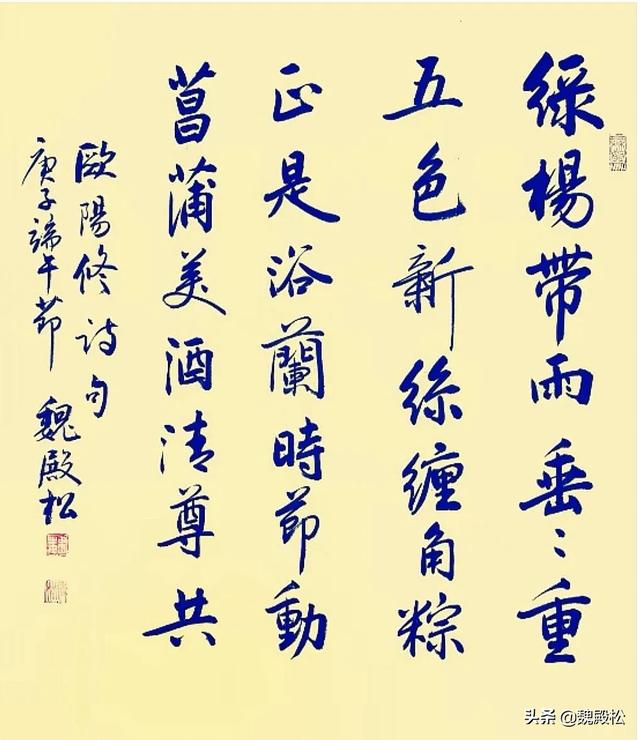 綠楊帶雨垂〻重
五色新絲纏角粽
正是浴蘭時節動
菖蒲美酒清尊共
歐陽修詩句
庚子端午節 魏殿松
头条 @魏殿松